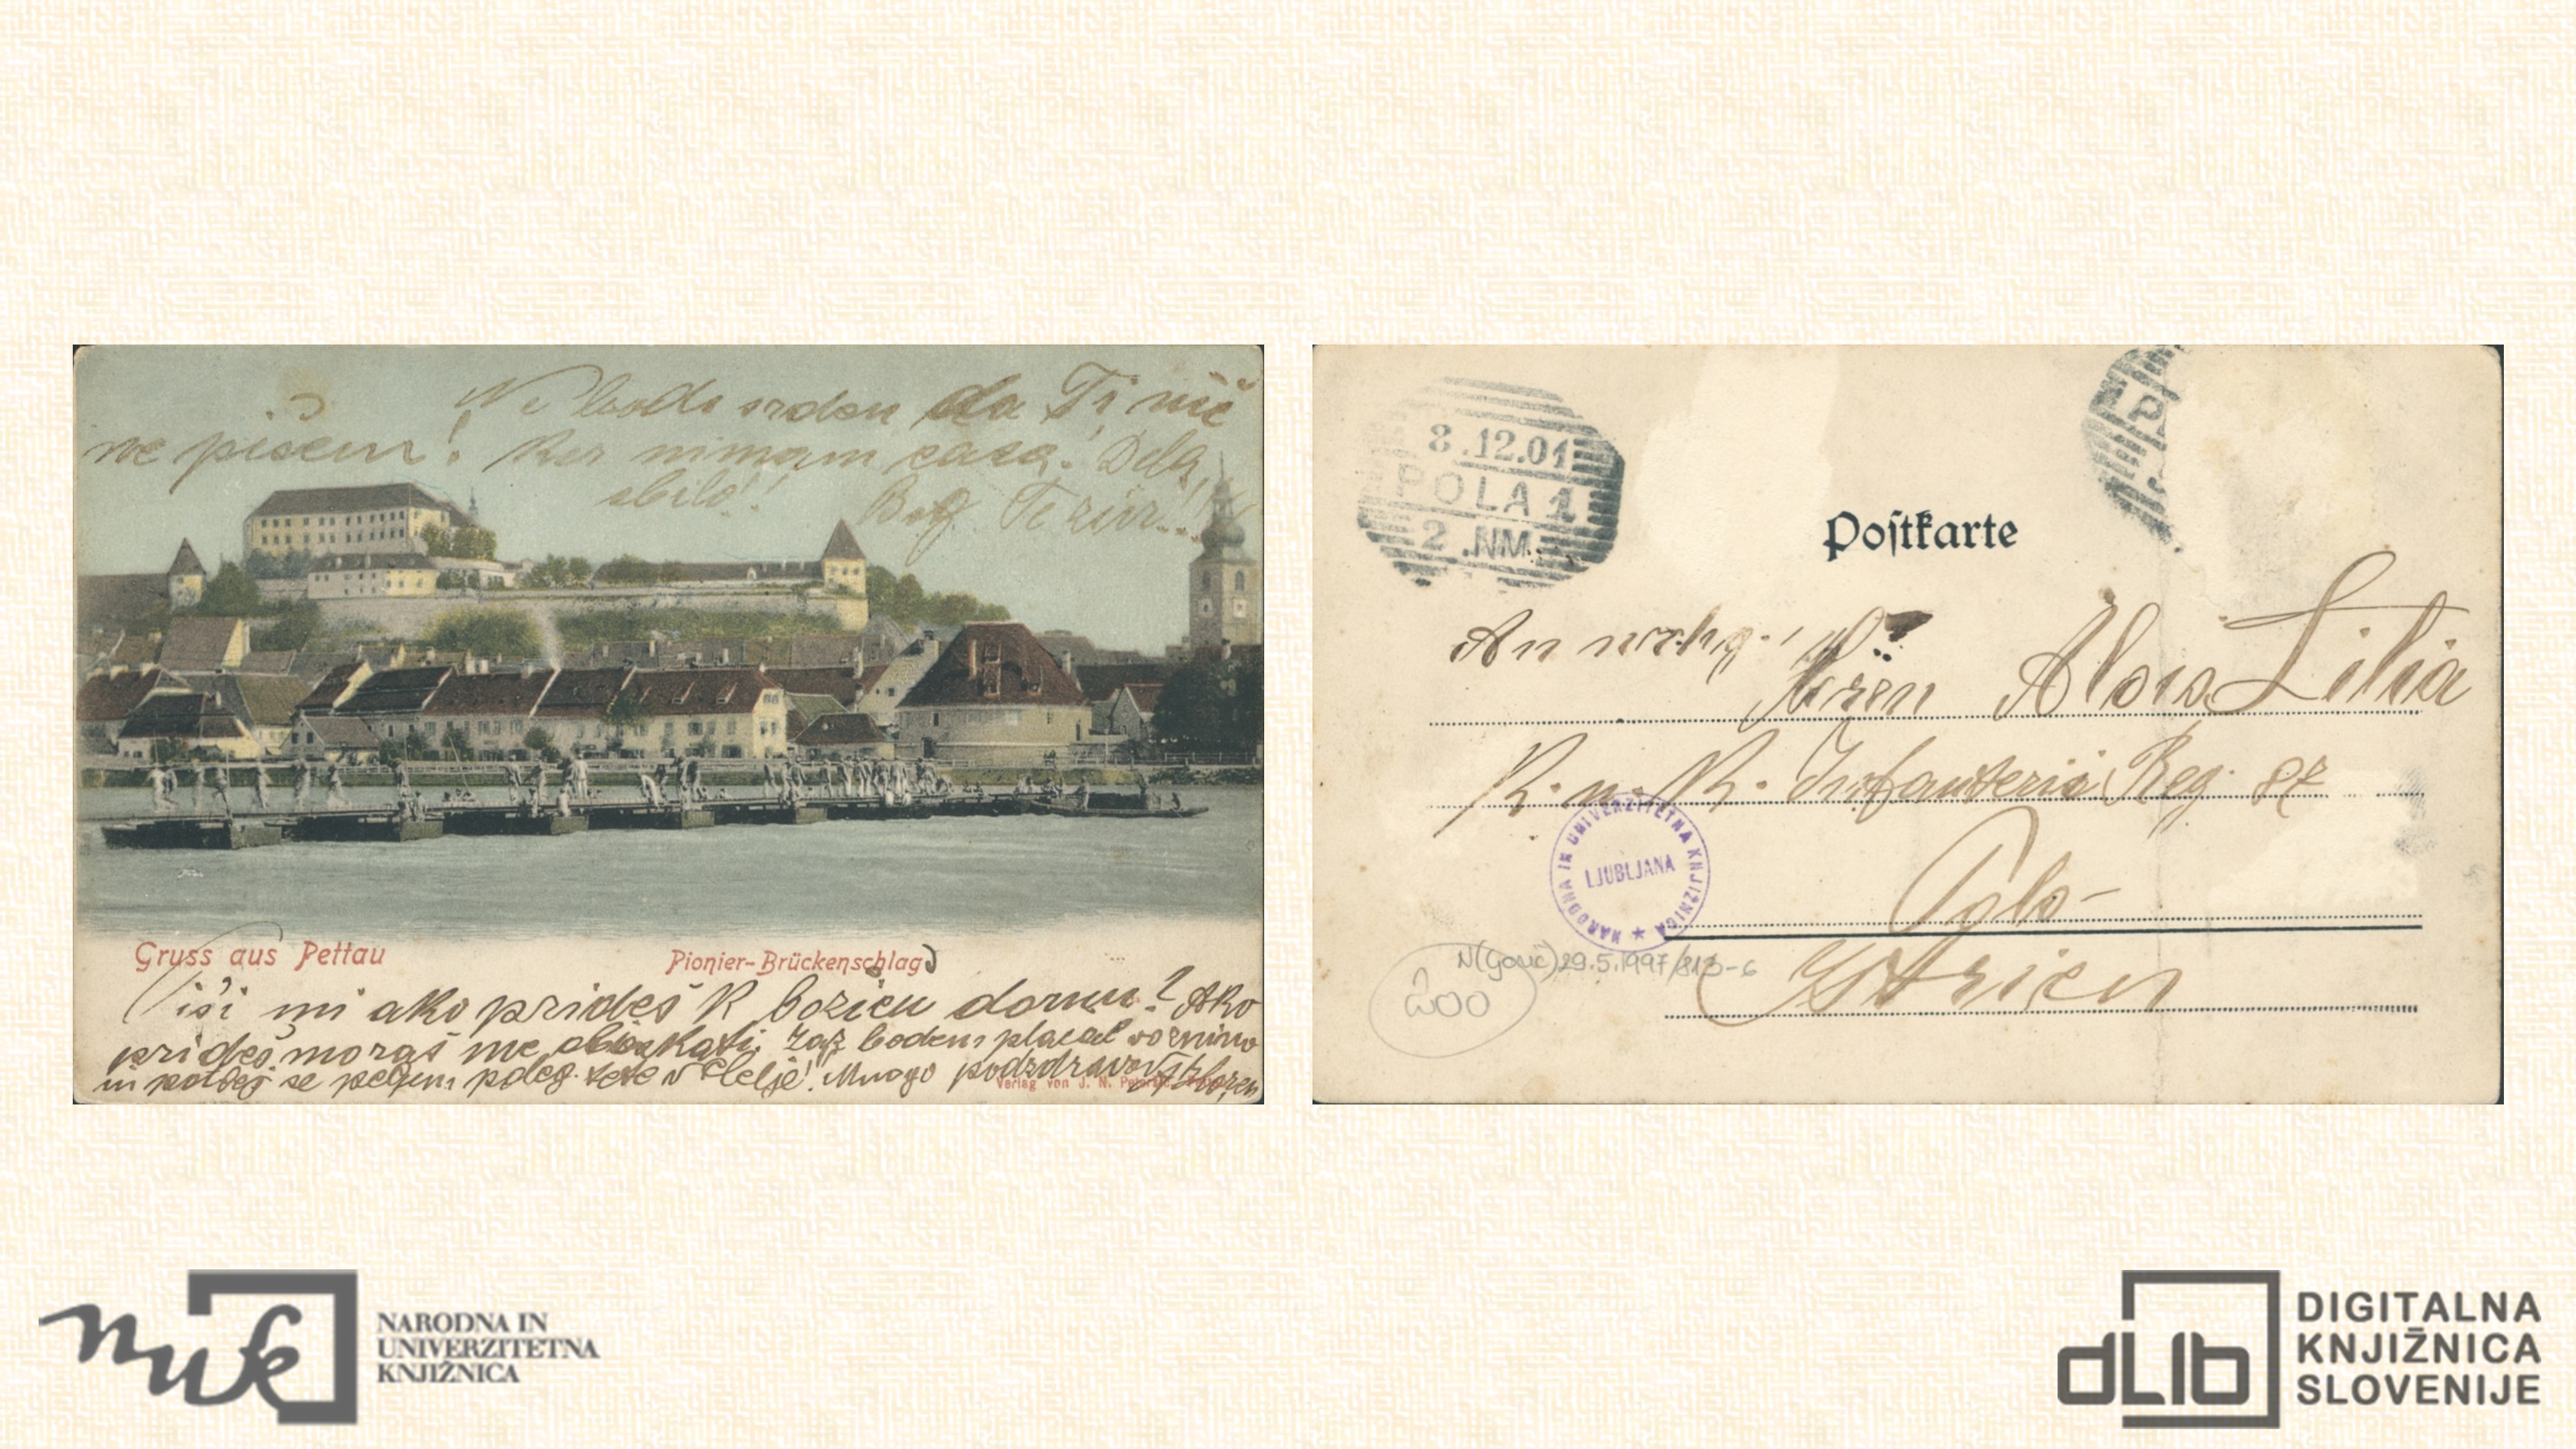 Ne bodi srden da Ti nič
ne pišem! Ker nimam časa! Dela
obilo!! Bog Te živi!!
Gruss aus Pettau
Pionier-Brückenschlag
Piši mi ako prideš k božiču domu? Ako
prideš moraš me obiskati, bodem plačal voznino
in potem se peljem v Celje! Mnogo pozdravov
Verlag von J. N.
8.12.01
POLA 1
2.NM.
Postkarte
An wohlg.
Herrn Alois Lilia
K. u. K. Infanterie Reg. 87
Pola
Istrien
NARODNA IN UNIVERZITETNA KNJIŽNICA
LJUBLJANA
29.5.1997/813-6
NARODNA IN
UNIVERZITETNA
KNJIŽNICA
nuk
dLib
DIGITALNA
KNJIŽNICA
SLOVENIJE